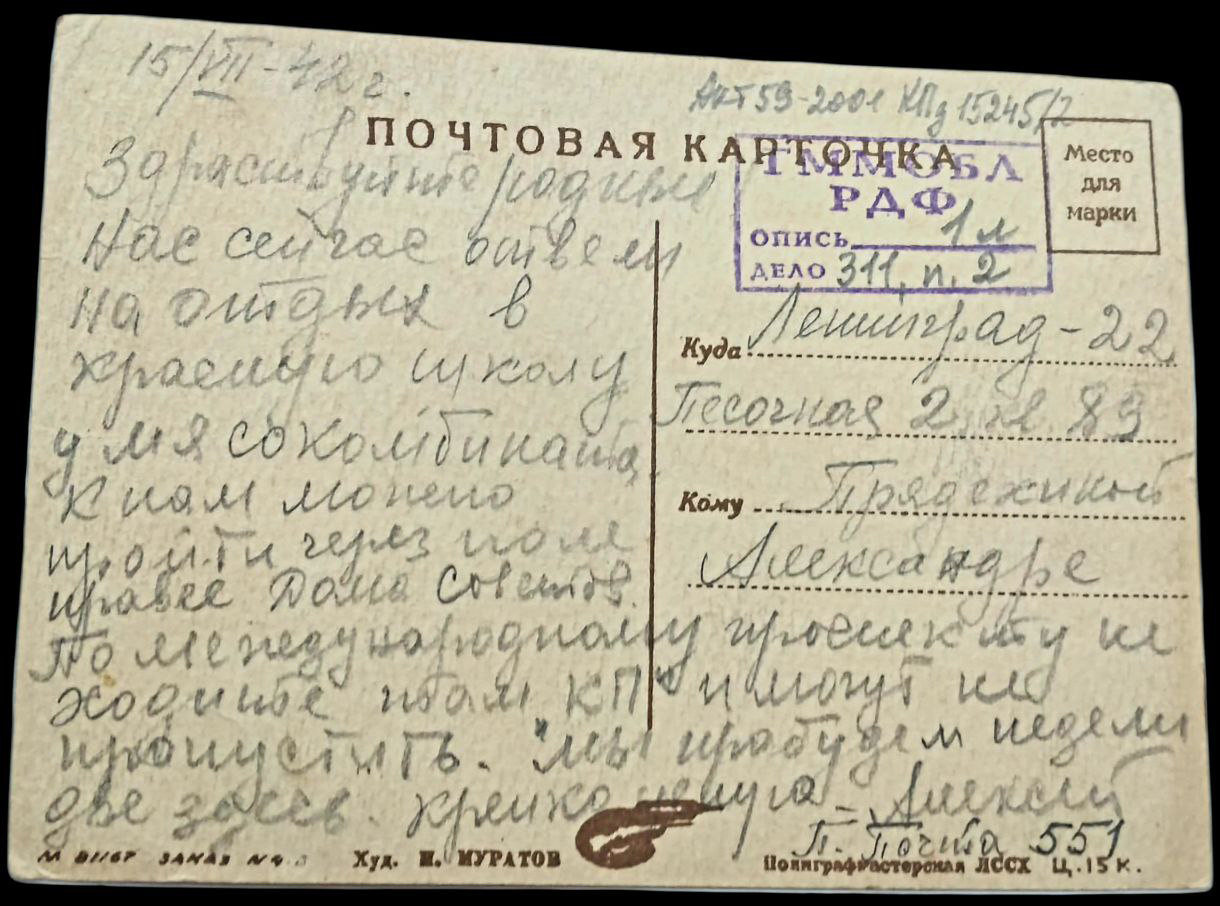 15/VII-42 г.
Акт 59-2001 КПд 15245/2
ПОЧТОВАЯ КАРТОЧКА
Место
для
марки
ГММОБЛ
РДФ
ОПИСЬ 1 л
ДЕЛО 311, п. 2
Здраствуйте родные
Нас сейчас отвели
на отдых в
красную школу
у мясокомбината.
К нам можно
пройти через поле
правее Дома Советов.
По международному проспекту не
ходите там "КП" и могут не
пропустить. Мы прабудем недели
две здесь. Крепко целую - Алексей
П. Почта 551
Куда Ленинград-22
Песочная 2 кв 83
Кому Прядехиной
Александре
ЗАКАЗ
Худ. И. МУРАТОВ
Полиграфмастерская ЛССХ Ц. 15 К.